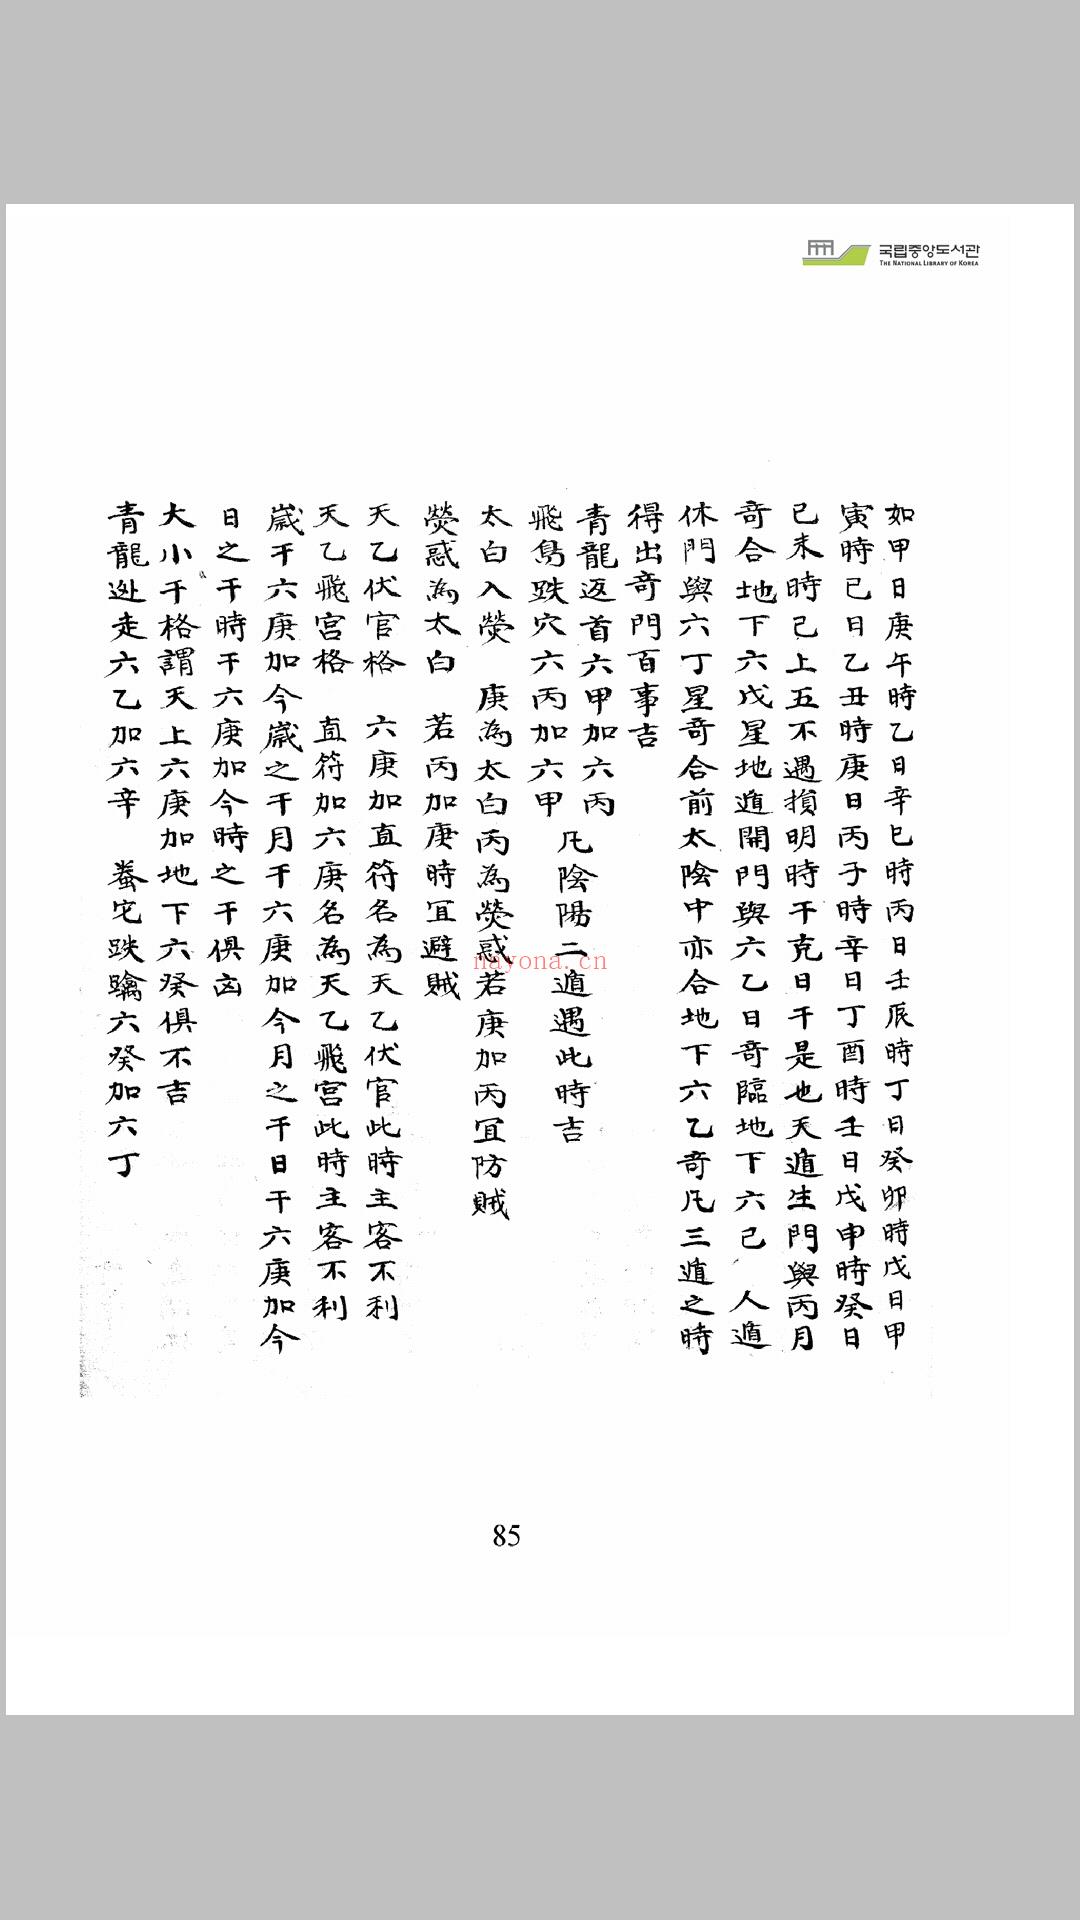 국립중앙도서관
THE NATIONAL LIBRARY OF KOREA
如甲日庚午時乙日辛巳時丙日壬辰時丁日癸卯時戊日甲
寅時己日乙丑時庚日丙子時辛日丁酉時壬日戊申時癸日
己未時己上五不遇損明時干克日干是也天遁生門與丙月
奇合地下六戊星地遁開門與六乙日奇臨地下六己 人遁
休門與六丁星奇合前太陰中亦合地下六乙奇凡三遁之時
得出奇門百事吉
青龍返首六甲加六丙
飛鳥跌穴六丙加六甲
凡陰陽二遁遇此時吉
太白入熒 庚為太白丙為熒惑若庚加丙宜防賊
熒惑為太白 若丙加庚時宜避賊
天乙伏官格 六庚加直符名為天乙伏官此時主客不利
天乙飛宮格 直符加六庚名為天乙飛宮此時主客不利
歲干六庚加今歲之干月干六庚加今月之干日干六庚加今
日之干時干六庚加今時之干俱凶
大小干格謂天上六庚加地下六癸俱不吉
青龍迯走六乙加六辛 跌六癸加六丁
nayona.cn
85